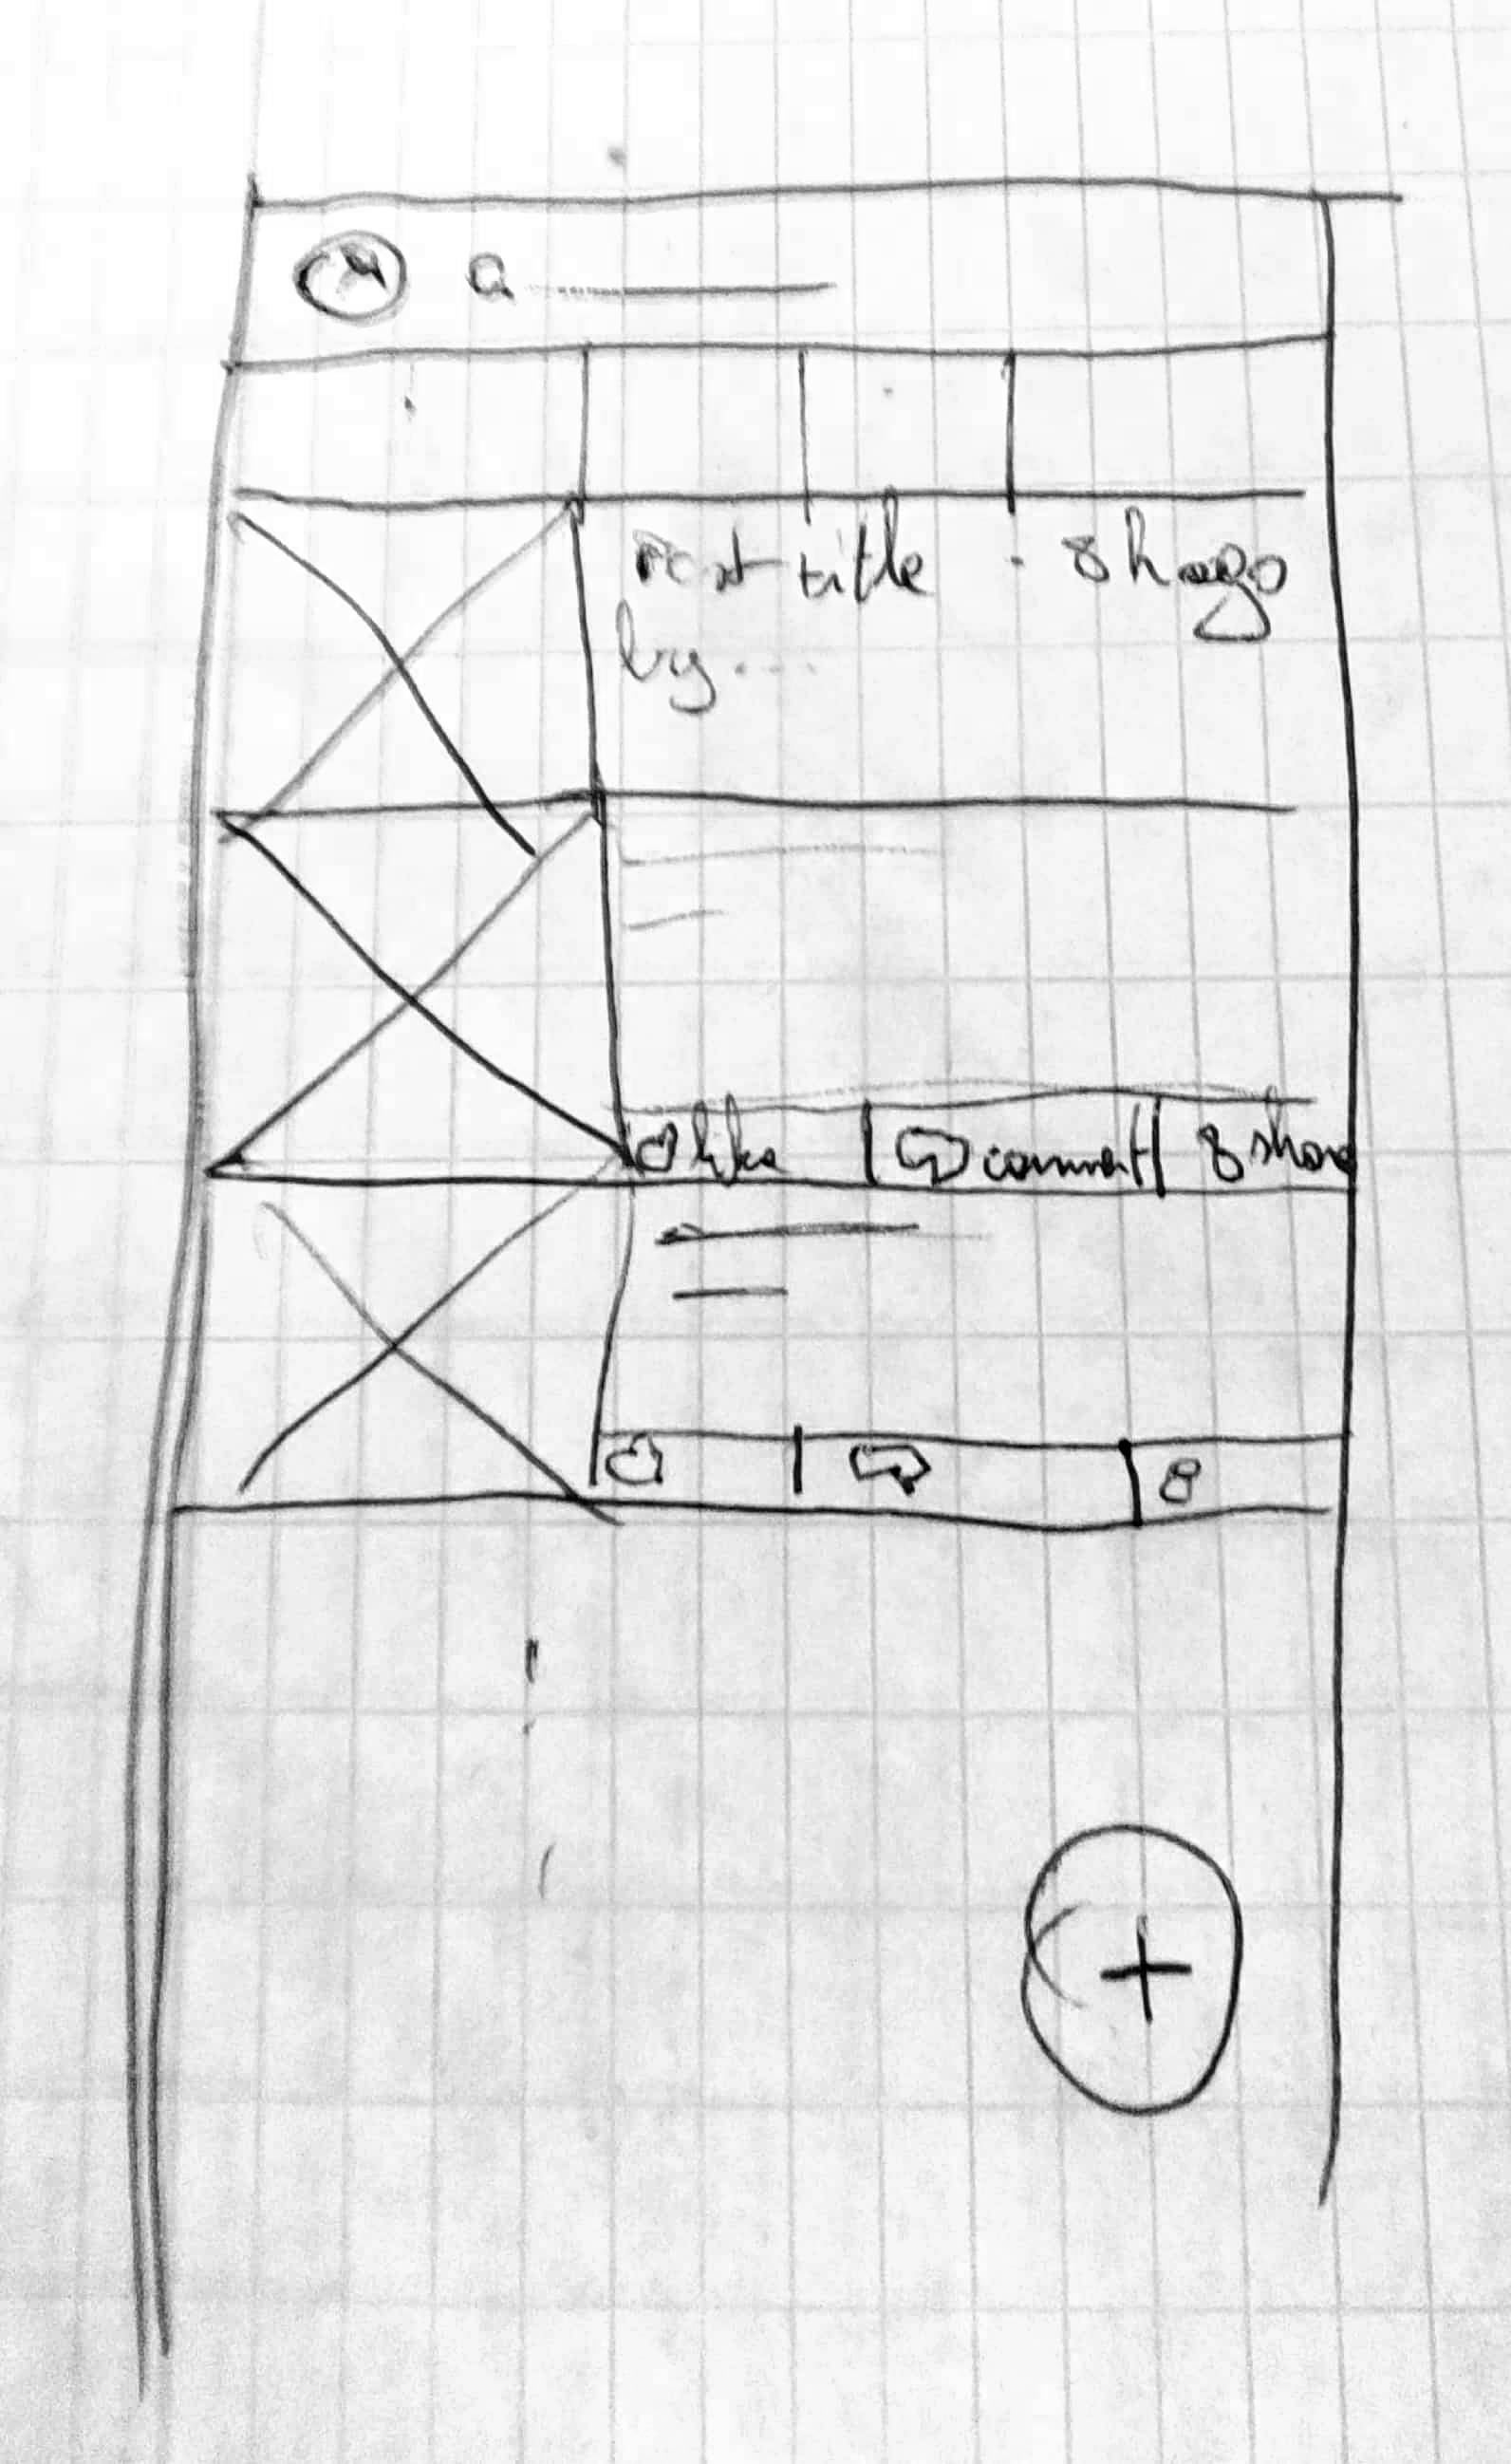 Post title · 8h ago
by...
like comment share